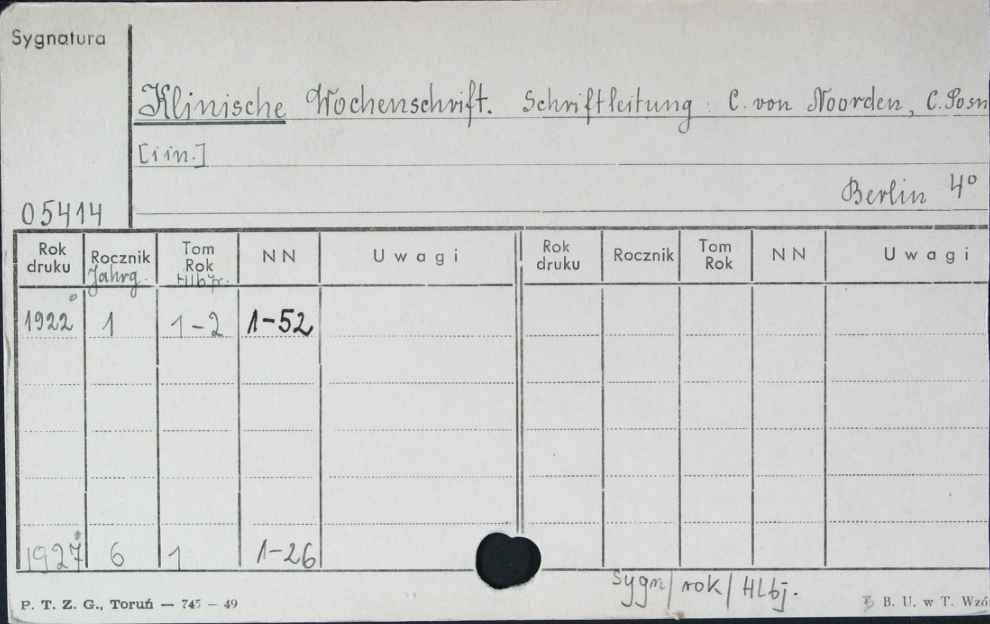 Sygnatura
Klinische Wochenschrift. Schriftleitung: C. von Noorden, C. Posn
[i in.]
Berlin 4°
05414
Rok druku Rocznik Jahrg. Tom Rok Hlbjr. NN Uwagi Rok druku Rocznik Tom Rok NN Uwagi
1922 1 1-2 1-52
1927 6 1 1-26
Sygn/rok/Hlbj.
P. T. Z. G., Toruń — 745 - 49 B. U. w T. Wzó